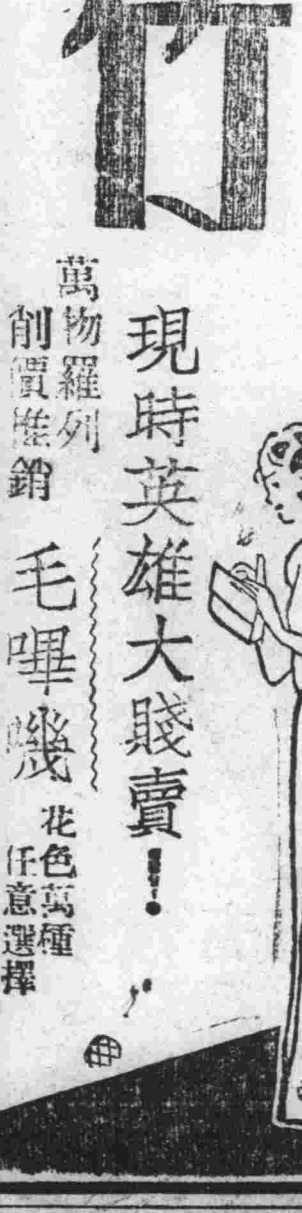 竹
現時英雄大賤賣!
萬物羅列
削價推銷
毛嗶嘰
花色萬種
任意選擇